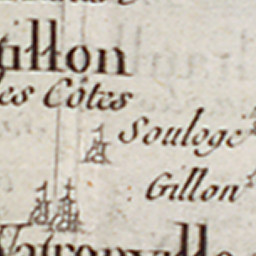 tillon
es Côtes
Souloge
Gillon